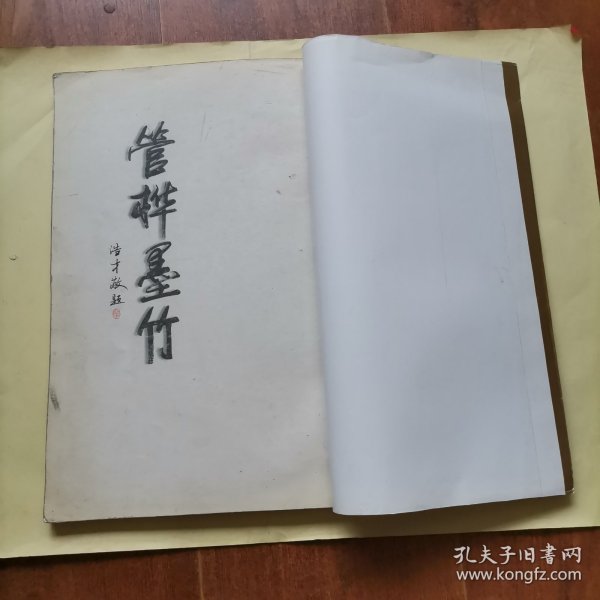 管桦墨竹
浩才敬题
孔夫子旧書网
www.kongfz.com